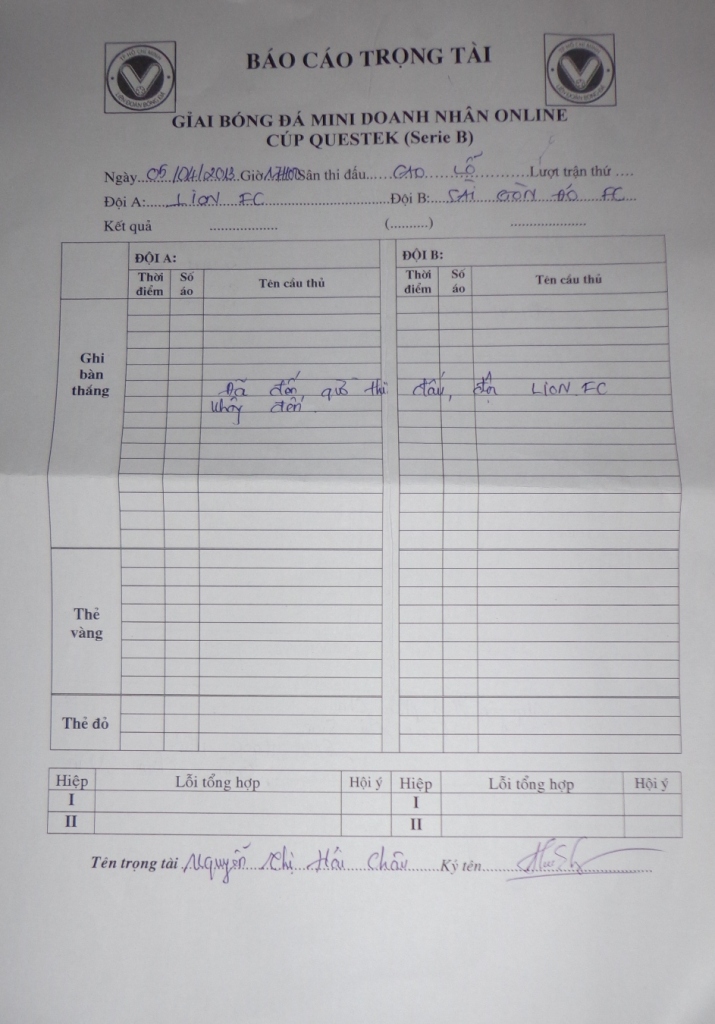 BÁO CÁO TRỌNG TÀI
TP HỒ CHÍ MINH
LIÊN ĐOÀN BÓNG ĐÁ
TP HỒ CHÍ MINH
LIÊN ĐOÀN BÓNG ĐÁ
GIẢI BÓNG ĐÁ MINI DOANH NHÂN ONLINE
CÚP QUESTEK (Serie B)
Ngày 05/04/2013 Giờ 17H00 Sân thi đấu CAO LỖ Lượt trận thứ ....
Đội A: LION FC Đội B: SÀI GÒN ĐỎ FC
Kết quả .................. (..........) ..................
ĐỘI A: ĐỘI B:
Thời điểm Số áo Tên cầu thủ Thời điểm Số áo Tên cầu thủ
Ghi bàn thắng
Đã đến giờ thi đấu, đội LION FC
không đến.
Thẻ vàng
Thẻ đỏ
Hiệp Lỗi tổng hợp Hội ý Hiệp Lỗi tổng hợp Hội ý
I I
II II
Tên trọng tài Nguyễn Thị Hải Châu Ký tên